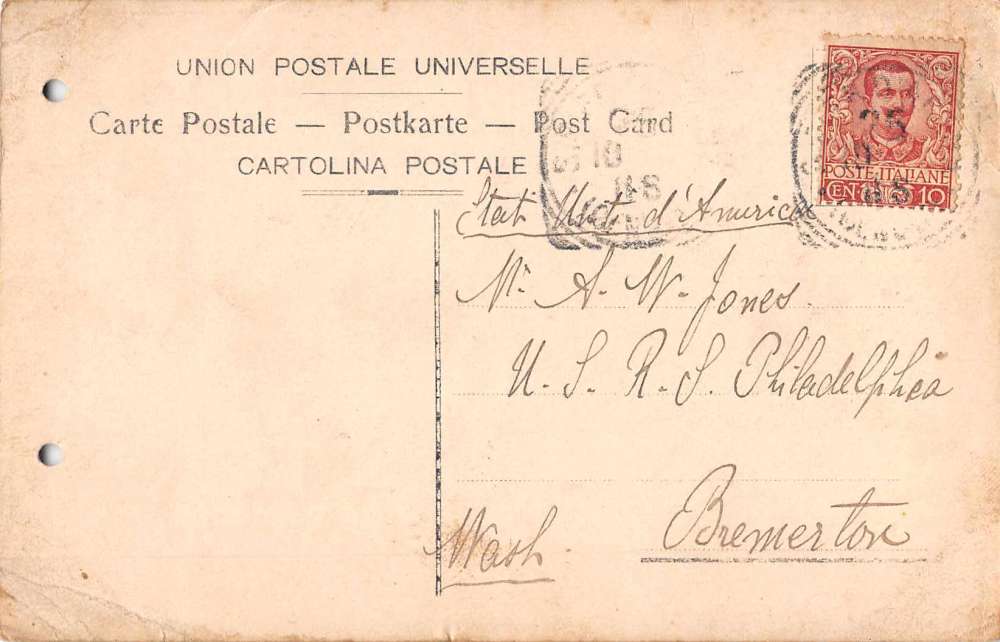 UNION POSTALE UNIVERSELLE
Carte Postale — Postkarte — Post Card
CARTOLINA POSTALE
POSTE ITALIANE
10
Stati Uniti d'America
Mr. A. W. Jones.
U. S. R. S. Philadelphia
Bremerton
Wash.